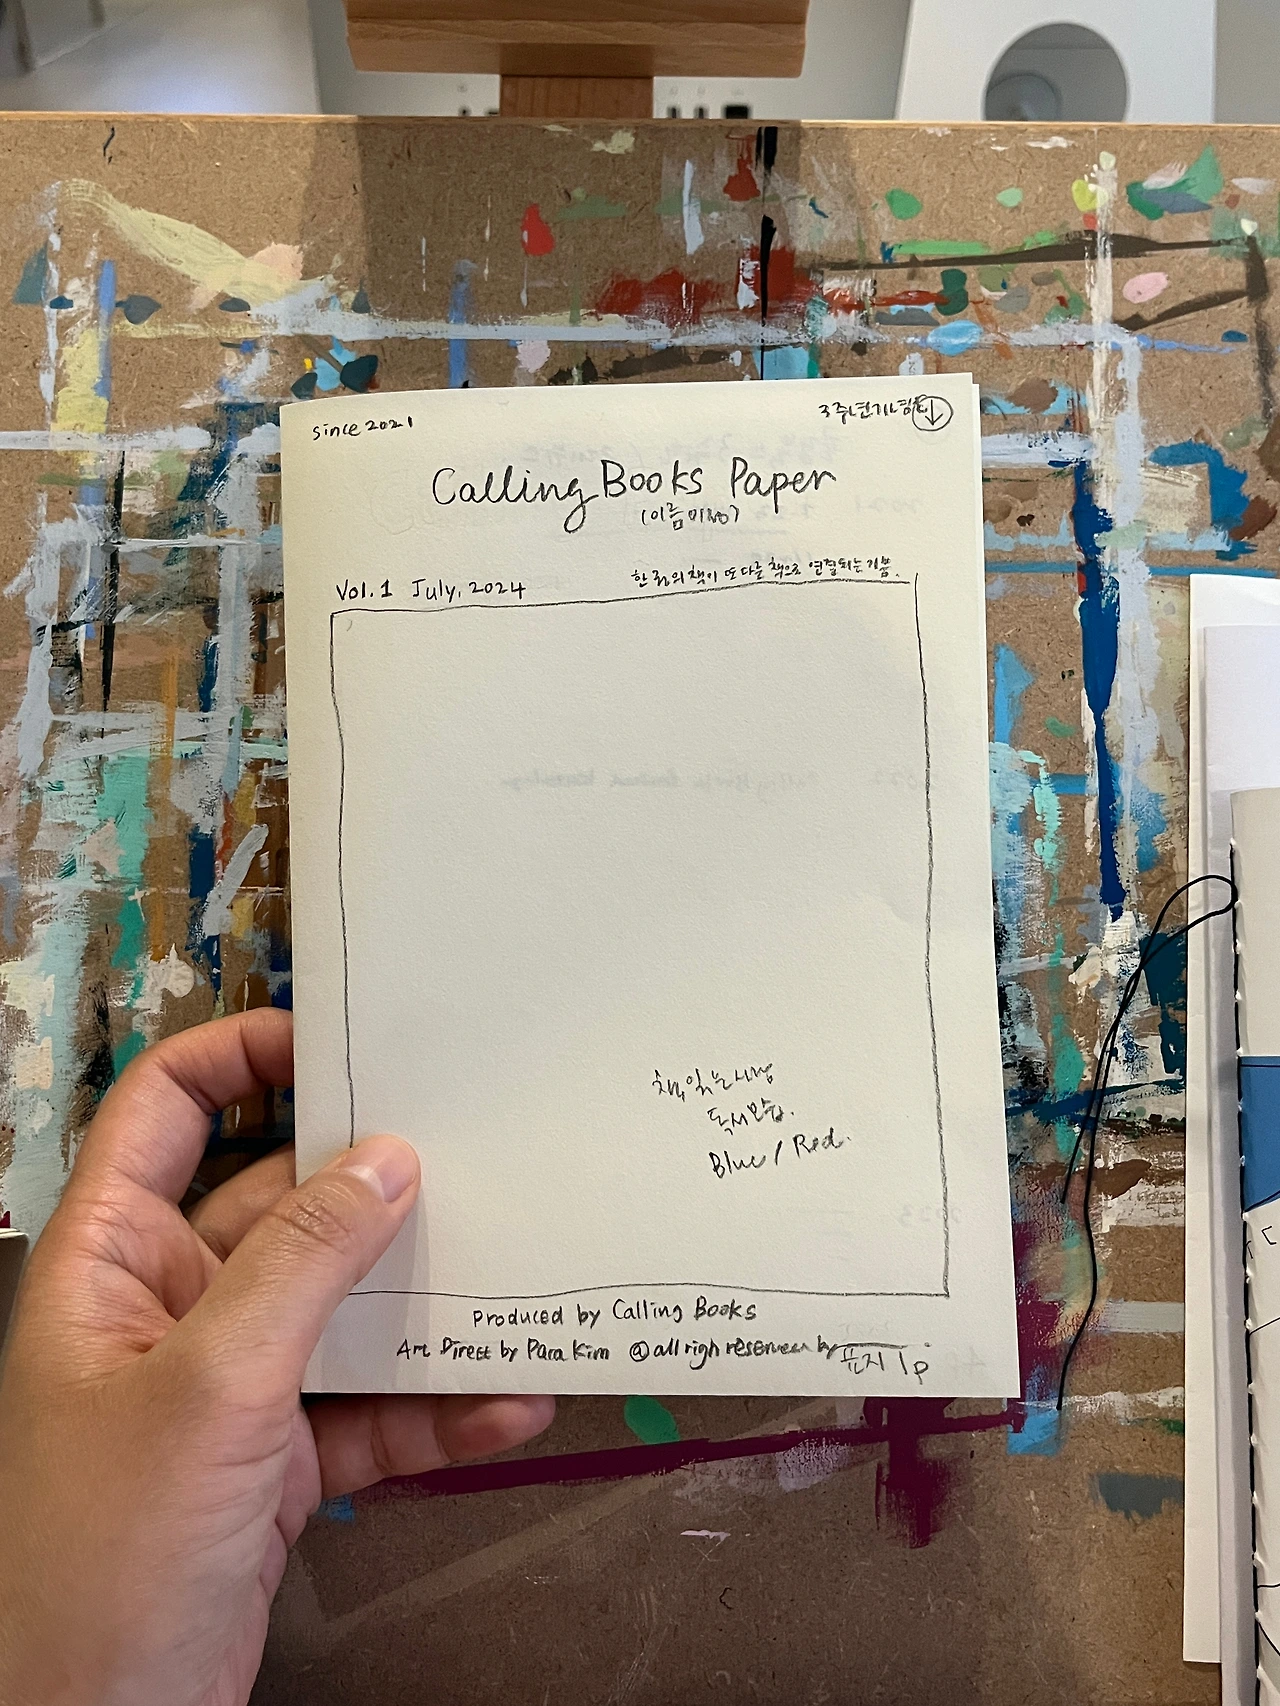 since 2021
3주년기념호
Calling Books Paper
(이름미정)
Vol. 1 July, 2024
한 권의 책이 또 다른 책으로 연결되는 기쁨.
책 읽는 사람
독서모습.
Blue / Red.
Produced by Calling Books
Art Direct by Para Kim @all righ reserveen by
표지 1p